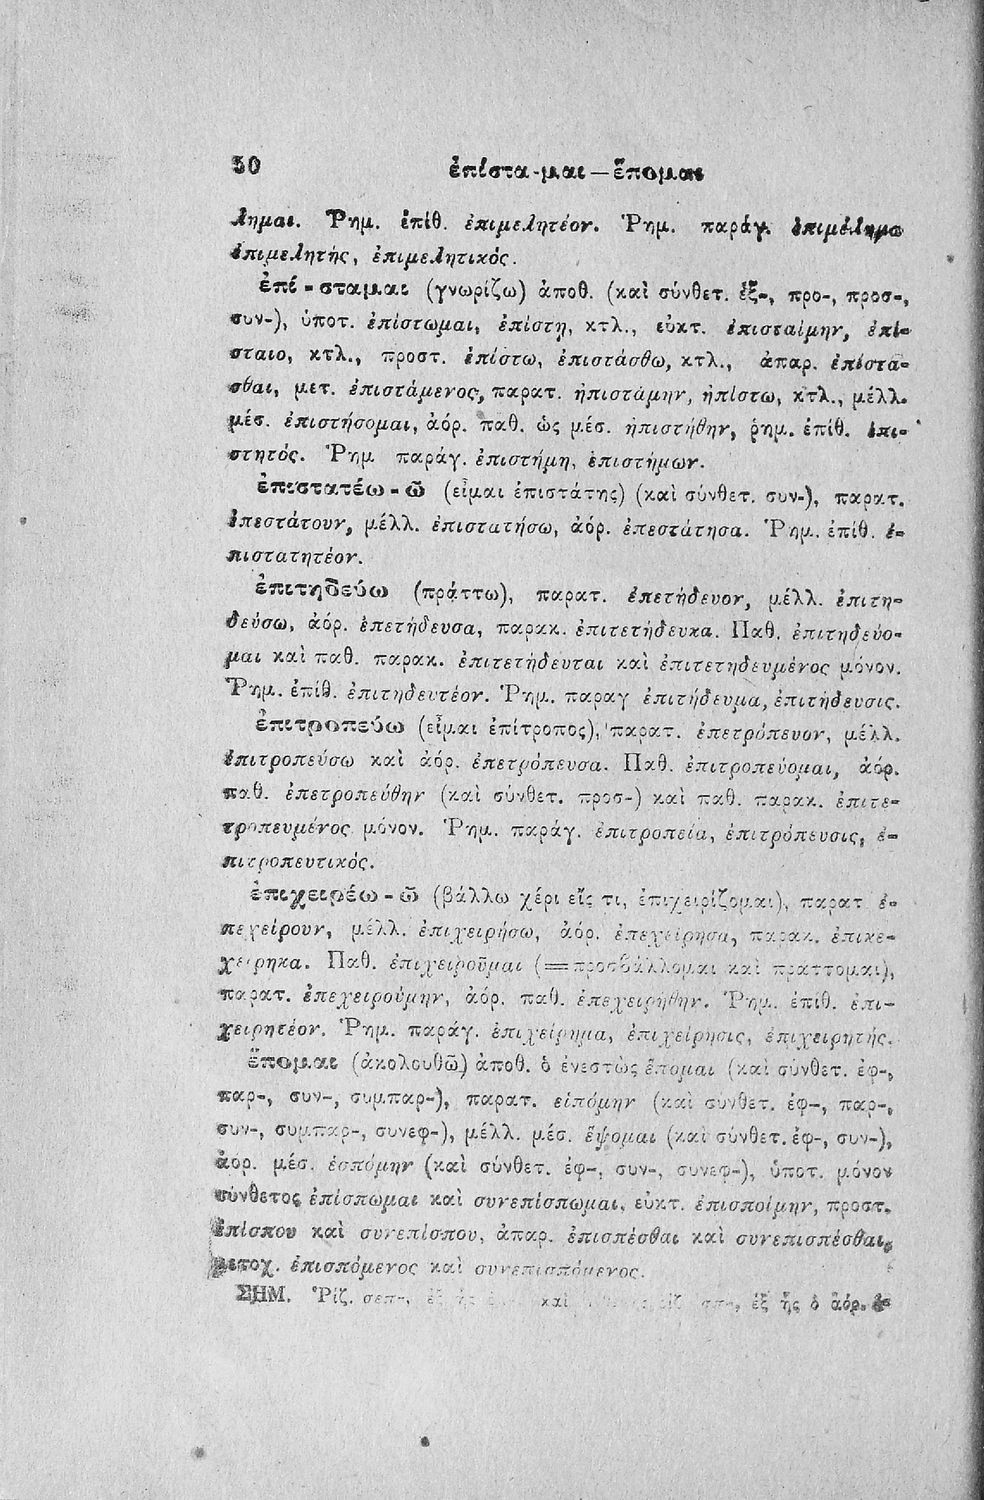 50 ἐπίστα-μαι — ἕπομαι
λημαι. Ῥημ. ἐπίθ. ἐπιμελητέον. Ῥημ. παράγ. ἐπιμέλημα
ἐπιμελητής, ἐπιμελητικός.
ἐπί-σταμαι (γνωρίζω) ἀποθ. (καὶ σύνθετ. ἐξ-, προ-, προσ-,
συν-), ὑποτ. ἐπίστωμαι, ἐπίστῃ, κτλ., εὐκτ. ἐπισταίμην, ἐπί-
σταιο, κτλ., προστ. ἐπίστω, ἐπιστάσθω, κτλ., ἀπαρ. ἐπίστα-
σθαι, μετ. ἐπιστάμενος, παρατ. ἠπιστάμην, ἠπίστω, κτλ., μέλλ.
μέσ. ἐπιστήσομαι, ἀόρ. παθ. ὡς μέσ. ἠπιστήθην, ῥημ. ἐπίθ. ἐπι-
στητός. Ῥημ. παράγ. ἐπιστήμη, ἐπιστήμων.
ἐπιστατέω-ῶ (εἶμαι ἐπιστάτης) (καὶ σύνθετ. συν-), παρατ.
ἐπεστάτουν, μέλλ. ἐπιστατήσω, ἀόρ. ἐπεστάτησα. Ῥημ. ἐπίθ. ἐ-
πιστατητέον.
ἐπιτηδεύω (πράττω), παρατ. ἐπετήδευον, μέλλ. ἐπιτη-
δεύσω, ἀόρ. ἐπετήδευσα, παρακ. ἐπιτετήδευκα. Παθ. ἐπιτηδεύο-
μαι καὶ παθ. παρακ. ἐπιτετήδευται καὶ ἐπιτετηδευμένος μόνον.
Ῥημ. ἐπίθ. ἐπιτηδευτέον. Ῥημ. παραγ ἐπιτήδευμα, ἐπιτήδευσις.
ἐπιτροπεύω (εἶμαι ἐπίτροπος), παρατ. ἐπετρόπευον, μέλλ.
ἐπιτροπεύσω καὶ ἀόρ. ἐπετρόπευσα. Παθ. ἐπιτροπεύομαι, ἀόρ.
παθ. ἐπετροπεύθην (καὶ σύνθετ. προσ-) καὶ παθ. παρακ. ἐπιτε-
τροπευμένος μόνον. Ῥημ. παράγ. ἐπιτροπεία, ἐπιτρόπευσις, ἐ-
πιτροπευτικός.
ἐπιχειρέω-ῶ (βάλλω χέρι εἴς τι, ἐπιχειρίζομαι), παρατ ἐ-
πεχείρουν, μέλλ. ἐπιχειρήσω, ἀόρ. ἐπεχείρησα, παρακ. ἐπικε-
χείρηκα. Παθ. ἐπιχειροῦμαι (=προσβάλλομαι καὶ πράττομαι),
παρατ. ἐπεχειρούμην, ἀόρ. παθ. ἐπεχειρήθην. Ῥημ. ἐπίθ. ἐπι-
χειρητέον. Ῥημ. παράγ. ἐπιχείρημα, ἐπιχείρησις, ἐπιχειρητής.
ἕπομαι (ἀκολουθῶ) ἀποθ. ὁ ἐνεστὼς ἕπομαι (καὶ σύνθετ. ἐφ-,
παρ-, συν-, συμπαρ-), παρατ. εἱπόμην (καὶ συνθετ. ἐφ-, παρ-,
συν-, συμπαρ-, συνεφ-), μέλλ. μέσ. ἕψομαι (καὶ σύνθετ. ἐφ-, συν-),
ἀορ. μέσ. ἑσπόμην (καὶ σύνθετ. ἐφ-, συν-, συνεφ-), ὑποτ. μόνον
σύνθετος ἐπίσπωμαι καὶ συνεπίσπωμαι, εὐκτ. ἐπισποίμην, προστ.
ἐπίσπου καὶ συνεπίσπου, ἀπαρ. ἐπισπέσθαι καὶ συνεπισπέσθαι,
μετοχ. ἐπισπόμενος καὶ συνεπισπόμενος.
ΣΗΜ. Ῥίζ. σεπ-, ἐξ ἧς καὶ σπ-, ἐξ ἧς ὁ ἀόρ. ἑ-